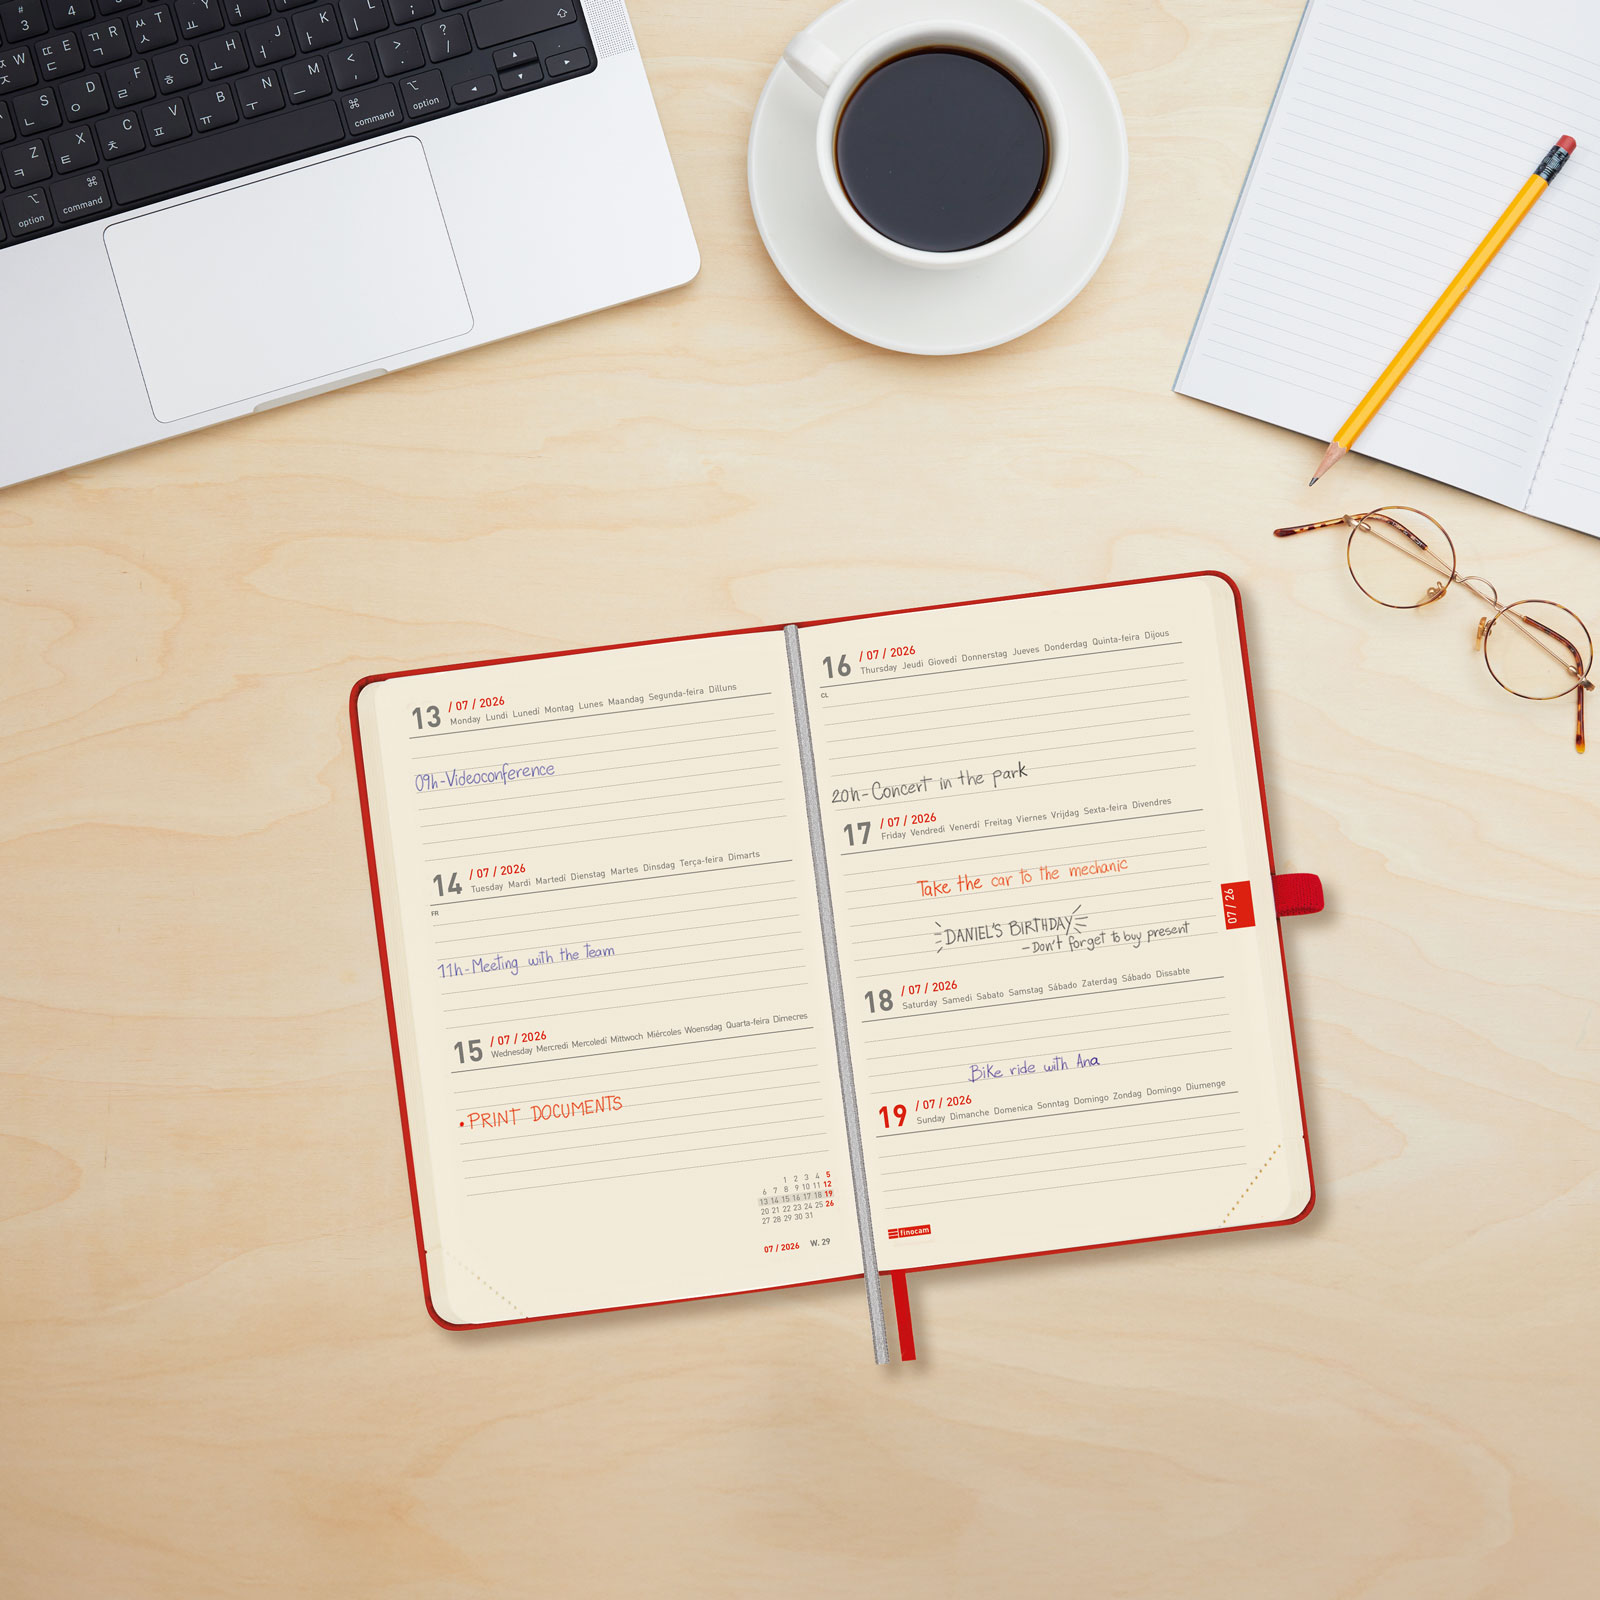 # 3 4
ㅈ W ㄸ ㄷ E ㄲ ㄱ R ㅆ ㅅ T ㅛ Y ㅕ U
ㄴ S ㅇ D ㄹ F ㅎ G ㅗ H ㅓ J ㅏ K ㅣ L : ;
ㅋ Z ㅌ X ㅊ C ㅍ V ㅠ B ㅜ N ㅡ M < , > . ? /
⌥ option ⌘ command ⌘ command ⌥ option
13 / 07 / 2026
Monday Lundi Lunedì Montag Lunes Maandag Segunda-feira Dilluns
09h-Videoconference
14 / 07 / 2026
Tuesday Mardi Martedì Dienstag Martes Dinsdag Terça-feira Dimarts
FR
11h-Meeting with the team
15 / 07 / 2026
Wednesday Mercredi Mercoledì Mittwoch Miércoles Woensdag Quarta-feira Dimecres
• PRINT DOCUMENTS
1 2 3 4 5
6 7 8 9 10 11 12
13 14 15 16 17 18 19
20 21 22 23 24 25 26
27 28 29 30 31
07 / 2026 W. 29
16 / 07 / 2026
Thursday Jeudi Giovedì Donnerstag Jueves Donderdag Quinta-feira Dijous
CL
20h-Concert in the park
17 / 07 / 2026
Friday Vendredi Venerdì Freitag Viernes Vrijdag Sexta-feira Divendres
Take the car to the mechanic
DANIEL'S BIRTHDAY
-Don't forget to buy present
07 / 26
18 / 07 / 2026
Saturday Samedi Sabato Samstag Sábado Zaterdag Sábado Dissabte
Bike ride with Ana
19 / 07 / 2026
Sunday Dimanche Domenica Sonntag Domingo Zondag Domingo Diumenge
finocam